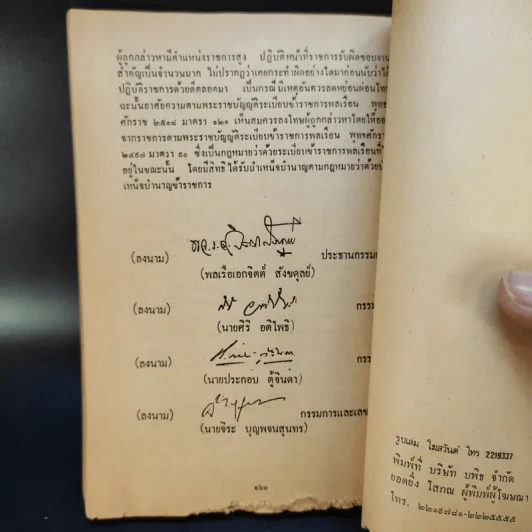 ผู้ถูกกล่าวหามีตำแหน่งราชการสูง ปฏิบัติหน้าที่ราชการรับผิดชอบงาน
สำคัญเป็นจำนวนมาก ไม่ปรากฏว่าเคยกระทำผิดอย่างใดมาก่อนนับว่าได้
ปฏิบัติราชการด้วยดีตลอดมา เป็นกรณีมีเหตุอันควรลดหย่อนผ่อนโทษ
ฉะนั้นอาศัยความตามพระราชบัญญัติระเบียบข้าราชการพลเรือน พุทธ
ศักราช ๒๕๑๘ มาตรา ๑๒๑ เห็นสมควรลงโทษผู้ถูกกล่าวหาโดยให้ออก
จากราชการตามพระราชบัญญัติระเบียบข้าราชการพลเรือน พุทธศักรา
๒๔๙๗ มาตรา ๙๐ ซึ่งเป็นกฎหมายว่าด้วยระเบียบข้าราชการพลเรือนที่ใ
อยู่ในขณะนั้น โดยมีสิทธิได้รับบำเหน็จบำนาญตามกฎหมายว่าด้วยบำ
เหน็จบำนาญข้าราชการ
(ลงนาม) ประธานกรรมก
(พลเรือเอกจิตต์ สังขดุลย์)
(ลงนาม) กรรม
(นายศิริ อติโพธิ)
(ลงนาม) กรร
(นายประกอบ ตู้จินดา)
(ลงนาม) กรรมการและเลข
(นายจิระ บุญพจนสุนทร)
รูปเล่ม โฆสวันต์ โทร 2219337
พิมพ์ที่ บริษัท บพิธ จำกัด
ยอดยิ่ง โสภณ ผู้พิมพ์ผู้โฆษณา
โทร. ๒๒๑๙๗๘๑-๒๒๒๕๕๕๕